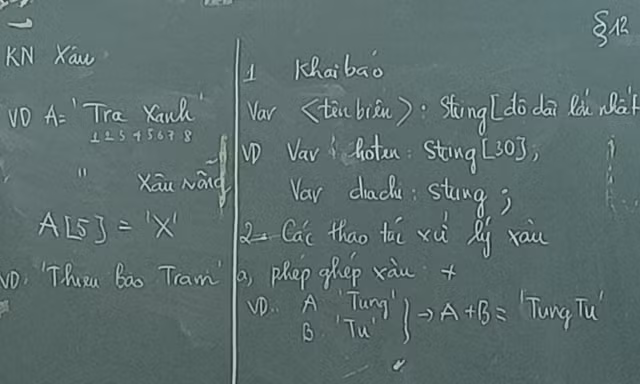 §12
KN Xâu
VD A= 'Tra Xanh'
1 2 3 4 5 6 7 8
" Xâu rỗng
A[5] = 'X'
VD: 'Thieu bao Tram'
1 Khai báo
Var <tên biến> : String[độ dài lớn nhất]
VD Var hoten: String[30];
Var diachi: string;
2- Các thao tác xử lý xâu
a, phép ghép xâu: +
VD: A 'Tung'
B 'Tu' → A+B= 'TungTu'